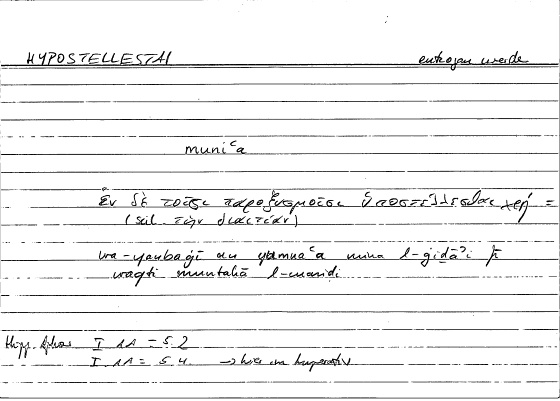 HYPOSTELLESTAI entzogen werde
muniʿa
ἐν δὲ τοῖσι παροξυσμοῖσι ὑποστέλλεσθαι χρή =
(scil. τὴν δίαιταν)
wa-yanbaġī an yumnaʿa mina l-ġiḏāʾi fī
waqti muntahā l-maraḍi
Hipp. Aphor. I 11 = 5.2
I 11 = 5.4 → hier im Imperativ